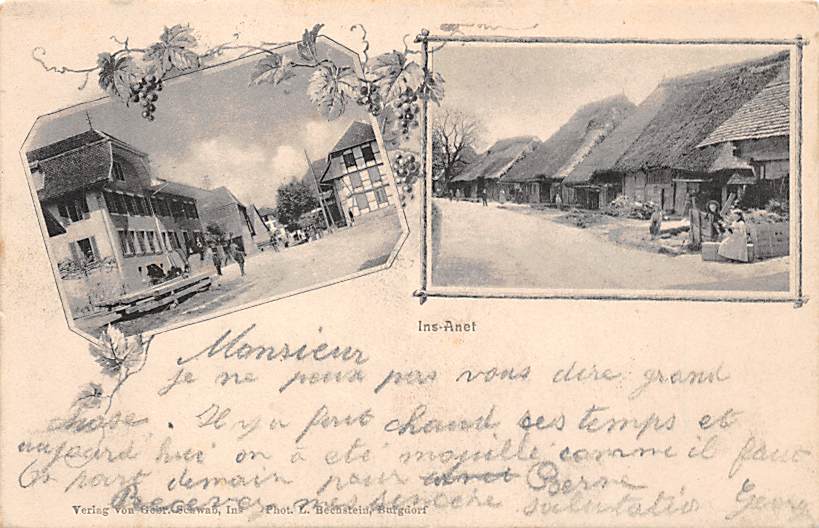 Ins-Anet
Monsieur
je ne peux pas vous dire grand
chose. Il y a fort chaud ses temps et
aujourd hui on a eté mouillé comme il faut
On part demain pour Berne
Recevez mes sincère salutatio Georg
Verlag von Gebr. Schwab, Ins Phot. L. Bechstein, Burgdorf